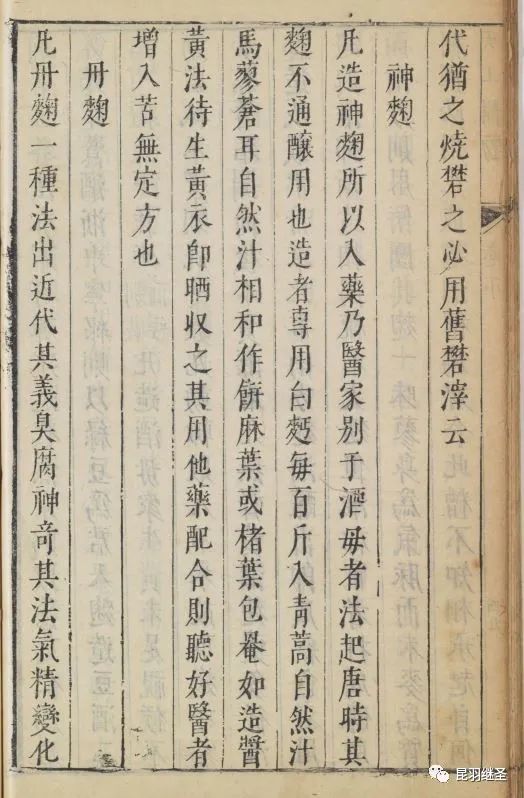 代猶之燒礬之必用舊礬滓云
神麴
凡造神麴所以入藥乃醫家別于酒母者法起唐時其
麴不通釀用也造者專用白麫每百斤入青蒿自然汁
馬蓼蒼耳自然汁相和作餅麻葉或楮葉包罨如造醬
黃法待生黃衣卽晒收之其用他藥配合則聽好醫者
增入苦無定方也
丹麴
凡丹麴一種法出近代其義臭腐神奇其法氣精變化
昆羽继圣